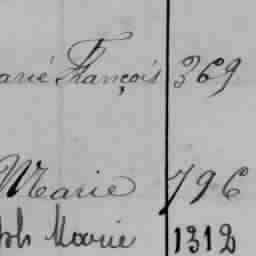 arié François 369
Marie 796
ph Marie 1312